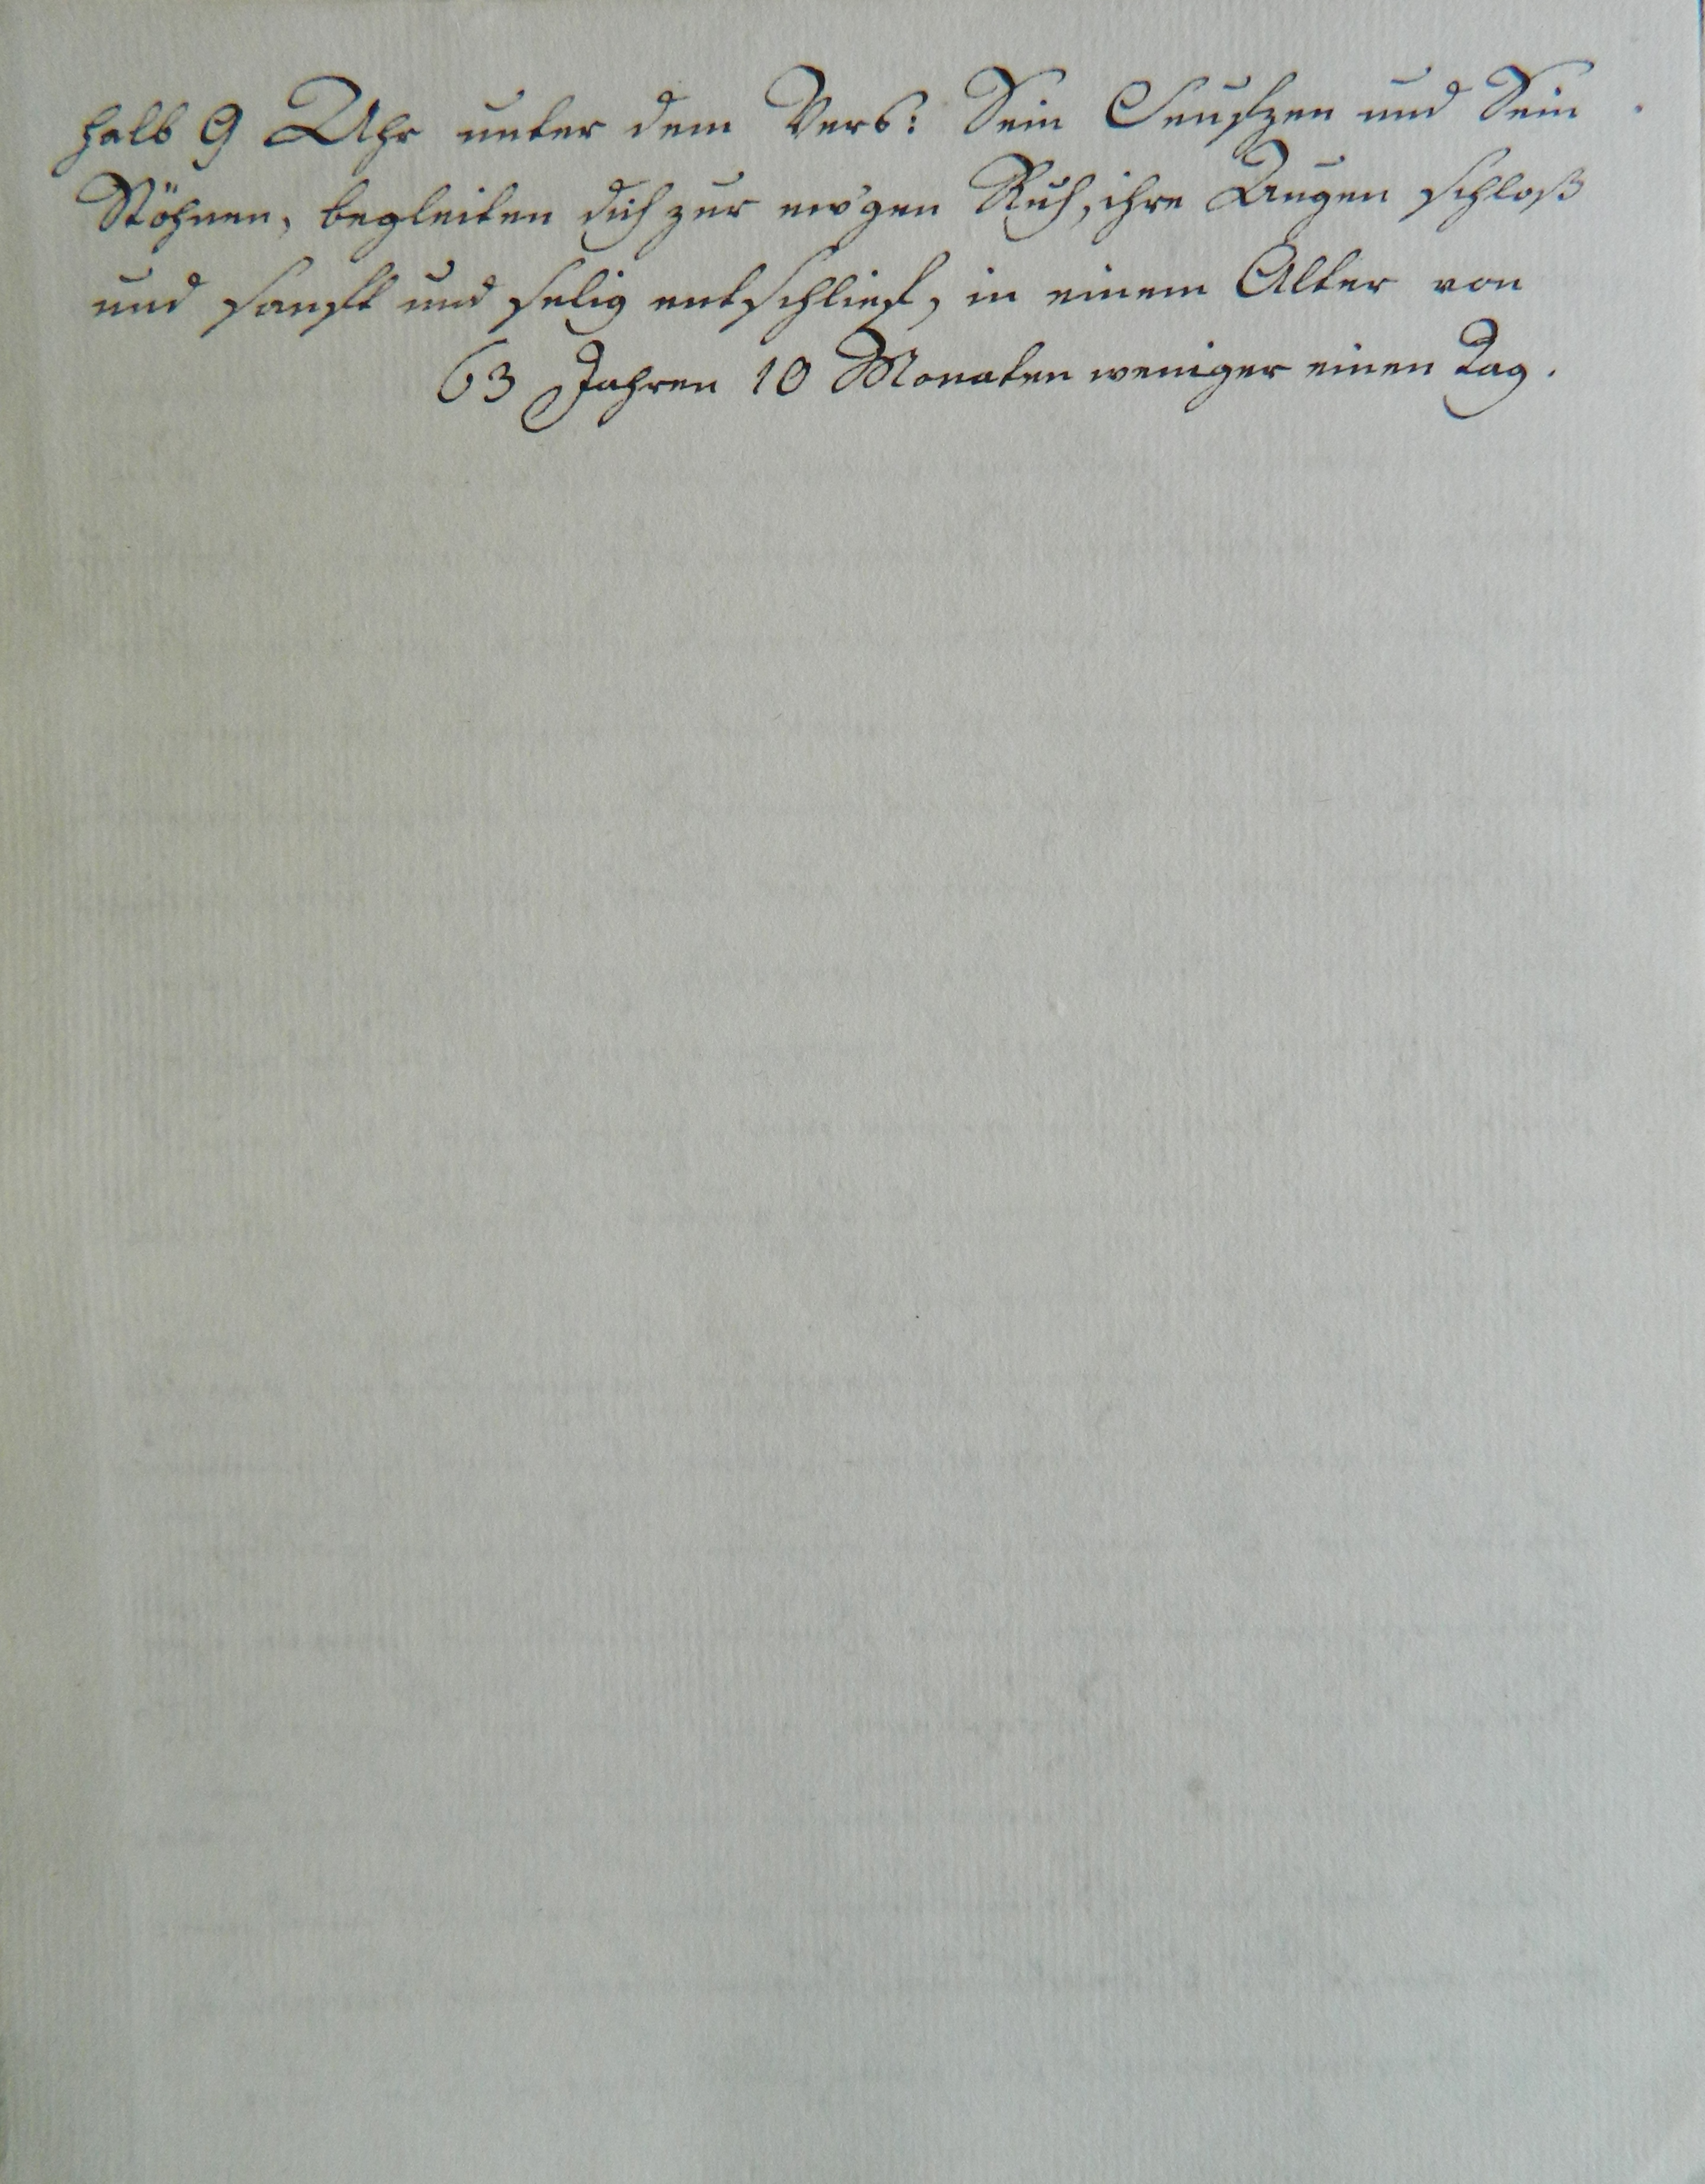 halb 9 Uhr unter dem Vers: Sein Seufzen und Sein
Stöhnen, begleiten dich zur ew'gen Ruh, ihre Augen schloß
und sanft und selig entschlief, in einem Alter von
63 Jahren 10 Monaten weniger einen Tag.